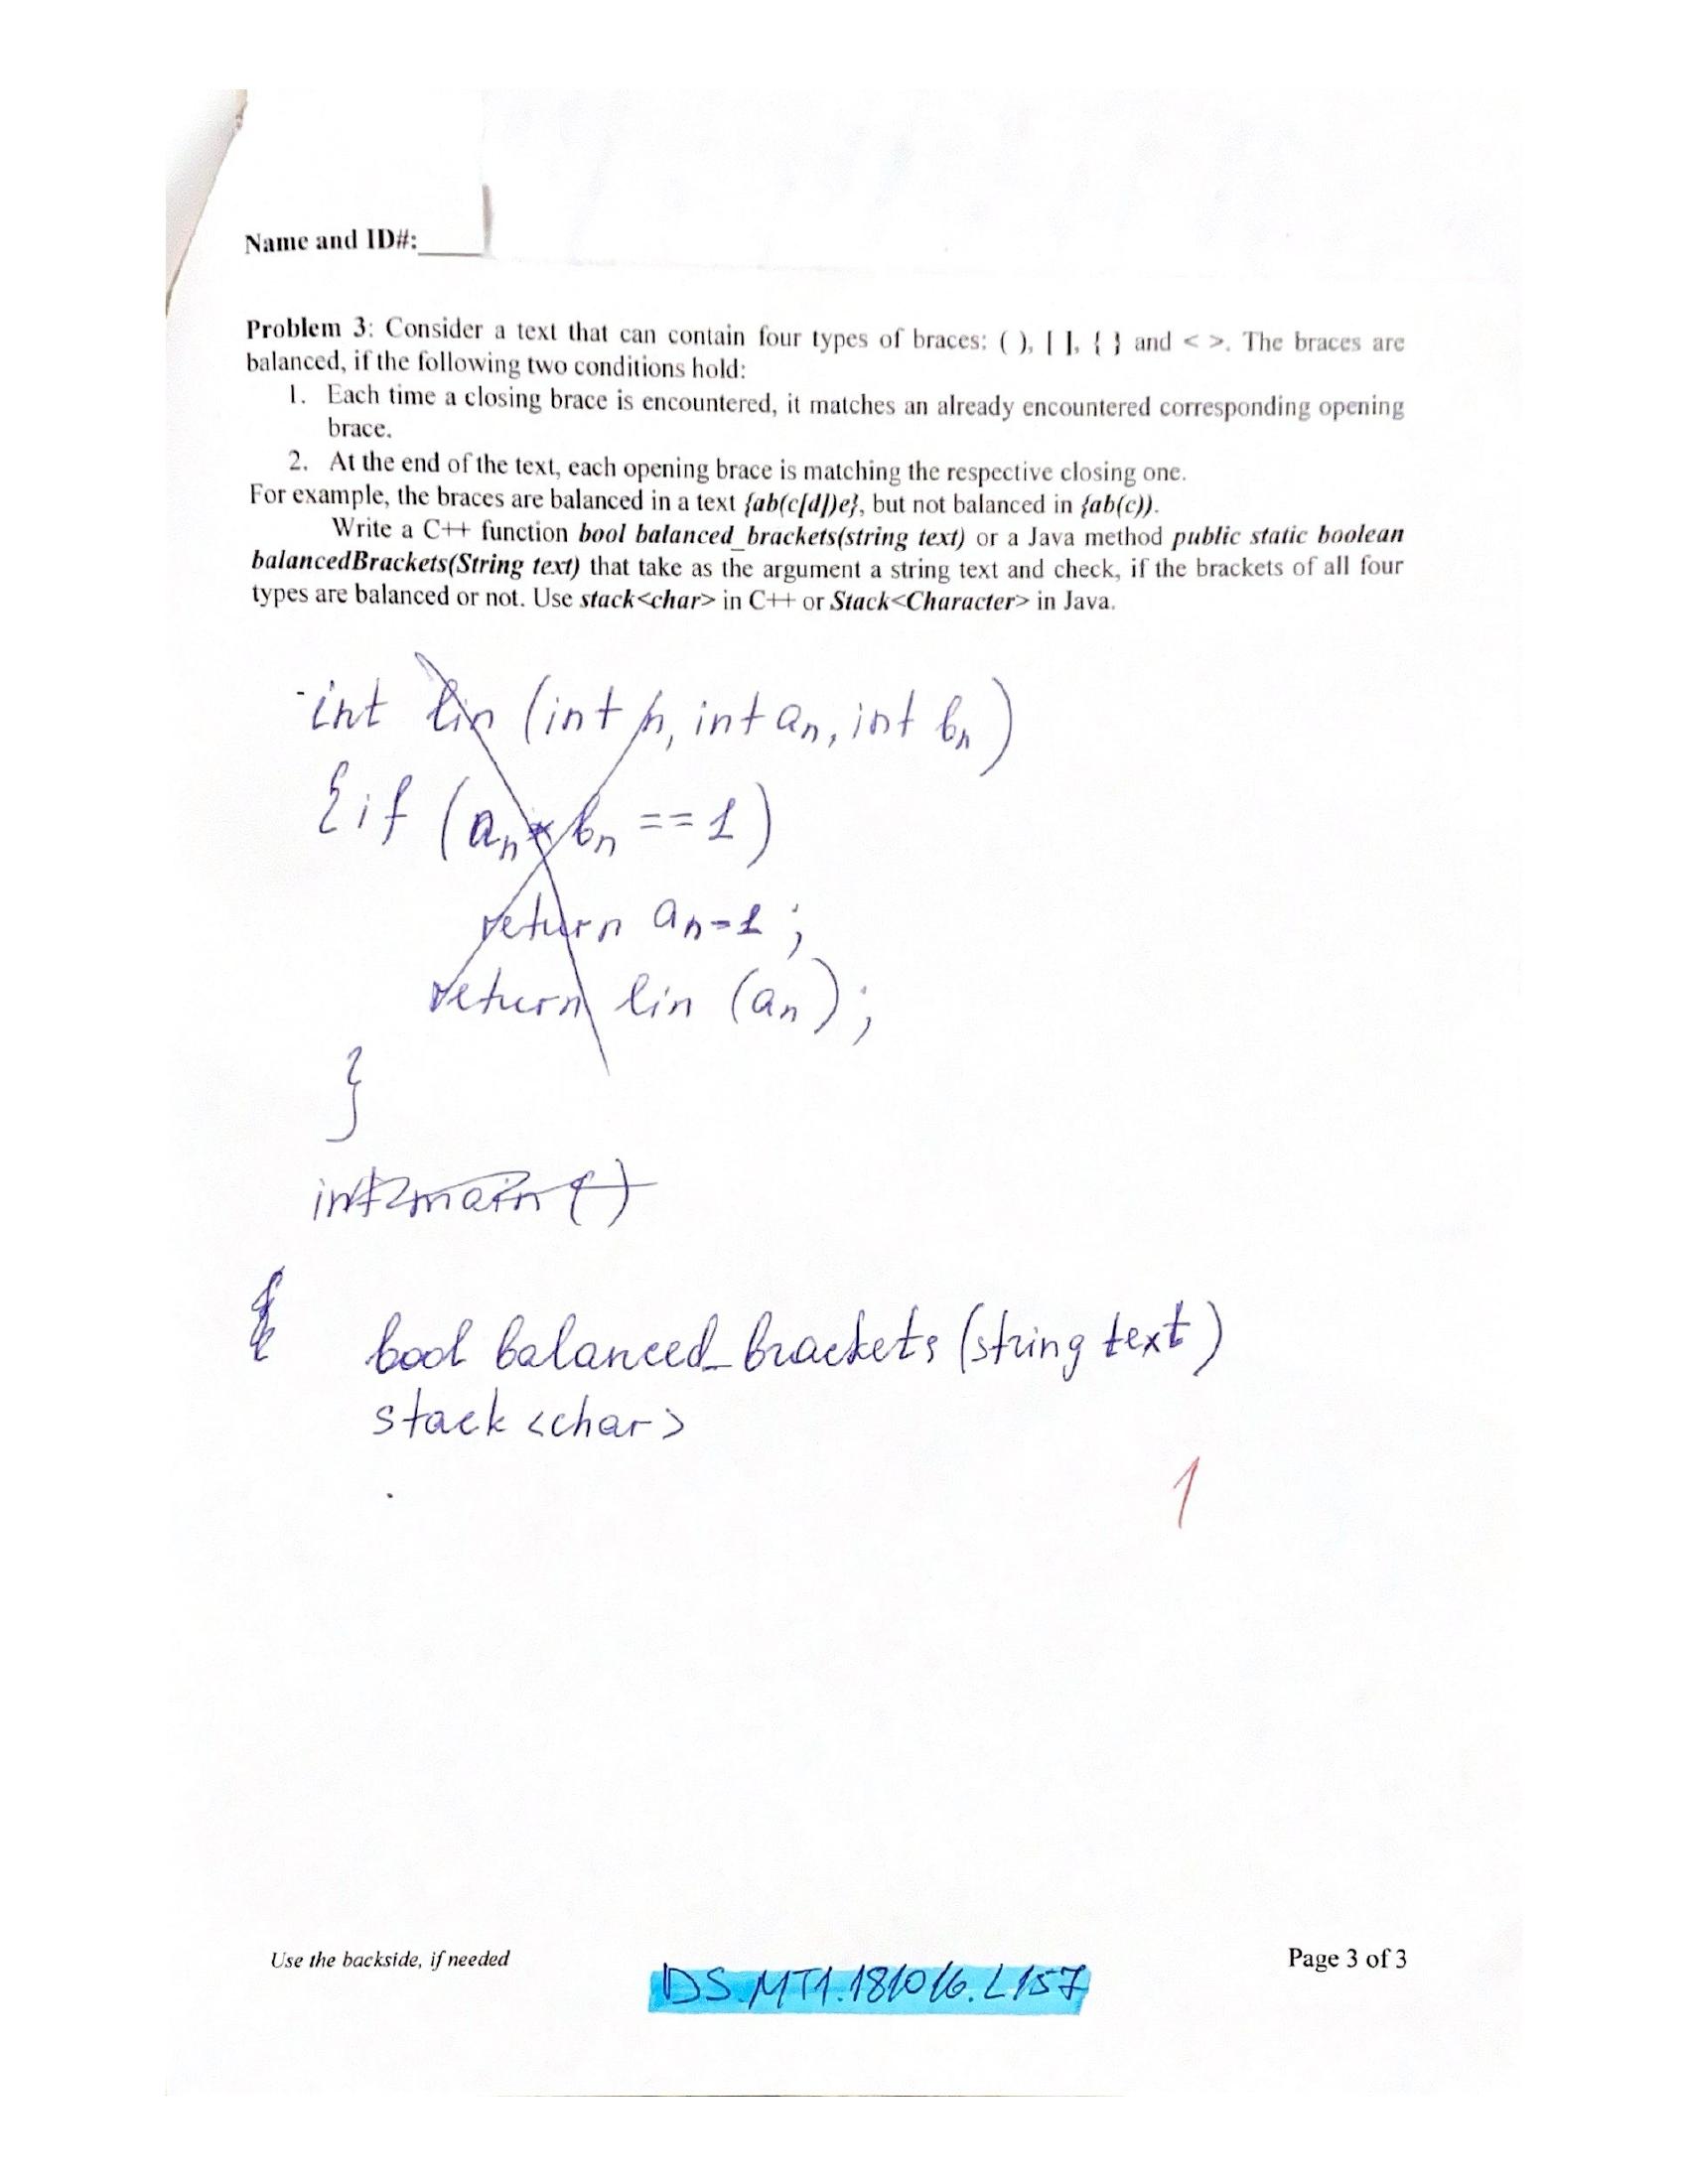 Name and ID#:
Problem 3: Consider a text that can contain four types of braces: ( ), [ ], { } and < >. The braces are
balanced, if the following two conditions hold:
1. Each time a closing brace is encountered, it matches an already encountered corresponding opening
brace.
2. At the end of the text, each opening brace is matching the respective closing one.
For example, the braces are balanced in a text {ab(c[d])e}, but not balanced in {ab(c)).
Write a C++ function bool balanced_brackets(string text) or a Java method public static boolean
balancedBrackets(String text) that take as the argument a string text and check, if the brackets of all four
types are balanced or not. Use stack<char> in C++ or Stack<Character> in Java.
int lin (int n, int an, int bn)
{if (an * bn == 1)
return an=1;
return lin (an);
}
int main ()
{
bool balanced_brackets (string text)
stack <char>
1
Use the backside, if needed
Page 3 of 3
DS.MT1.181016.L157